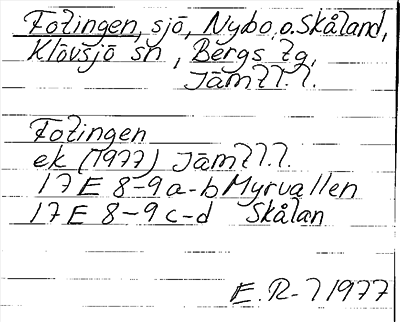 Fotingen, sjö, Nybo o. Skåland,
Klövsjö sn, Bergs tg,
Jämtl.l.
Fotingen
ek (1977) Jämtl.l.
17 E 8-9 a-b Myrvallen
17 E 8-9 c-d Skålan
E.R-l 1977